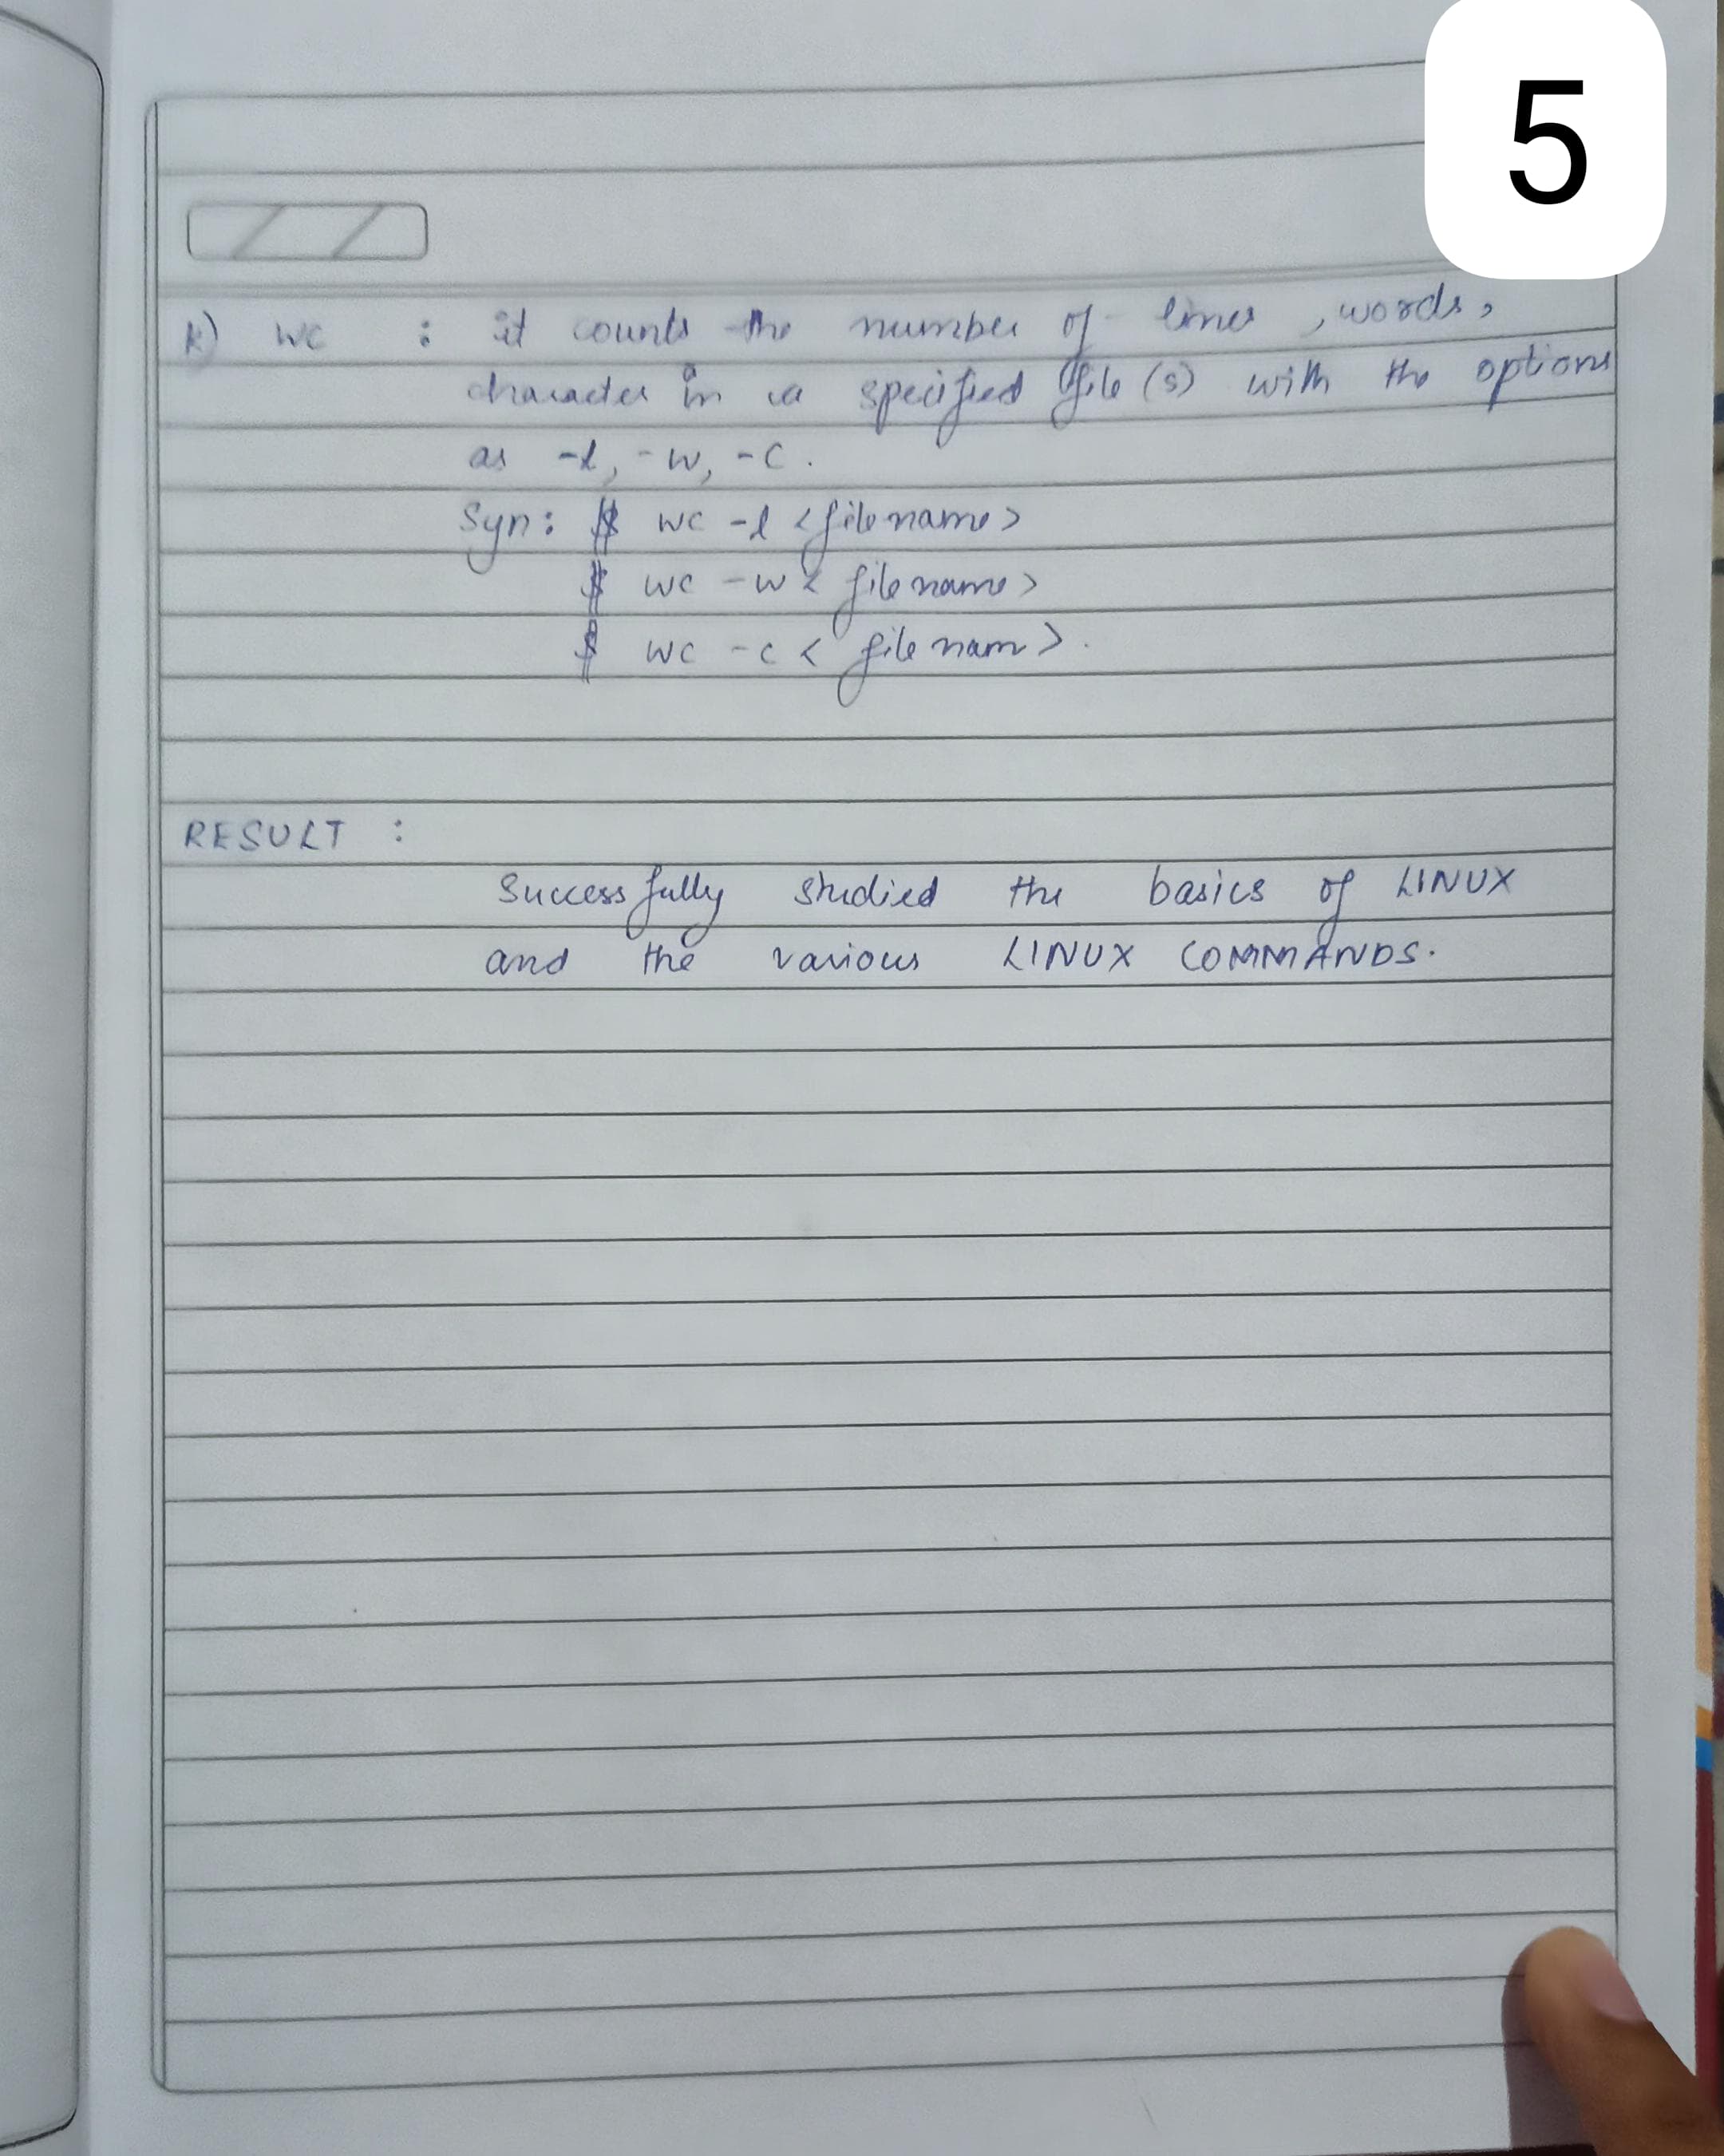 5
k) wc : it counts the number of lines , words,
character in a specified file (s) with the options
as -l, -w, -c .
Syn: $ wc -l <filename>
$ wc -w < filename>
$ wc -c < filenam>.
RESULT :
Successfully studied the basics of LINUX
and the various LINUX COMMANDS.